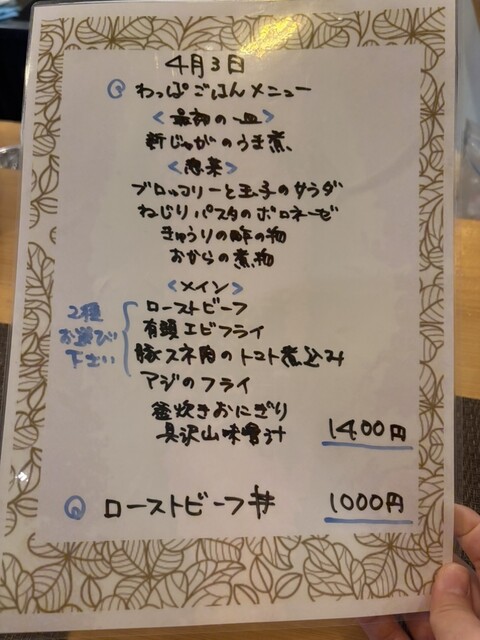 4月3日
わっぱごはんメニュー
<最初の一皿>
新じゃがのうま煮、
<惣菜>
ブロッコリーと玉子のサラダ
ねじりパスタのボロネーゼ
きゅうりの酢の物
おからの煮物
<メイン>
2種
お選び
下さい
ローストビーフ
有頭エビフライ
豚スネ肉のトマト煮込み
アジのフライ
釜炊きおにぎり
具沢山味噌汁
1400円
ローストビーフ丼 1000円